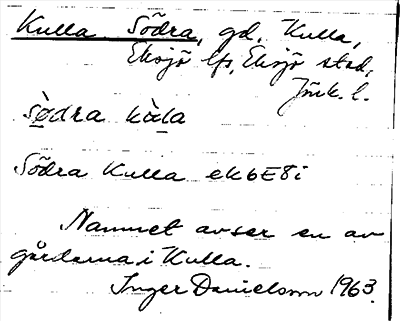 Kulla Södra, gd. Kulla,
Eksjö lfs, Eksjö stad,
Jönk. l.
sòdra kàla
Södra Kulla ek6E8i
Namnet avser en av
gårdarna i Kulla.
Inger Danielsson 1963.